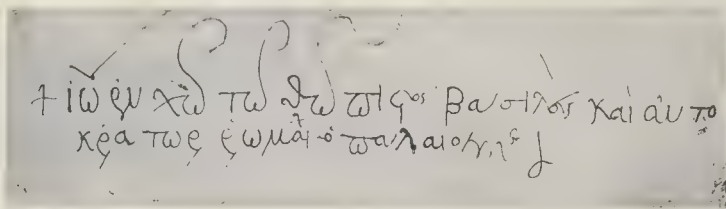 + ἰω ἐν χῶ τῶ θῶ πιστος βασιλεὺς καὶ αὐτο
κράτωρ ῥωμαί ὁ παλαιολόγος